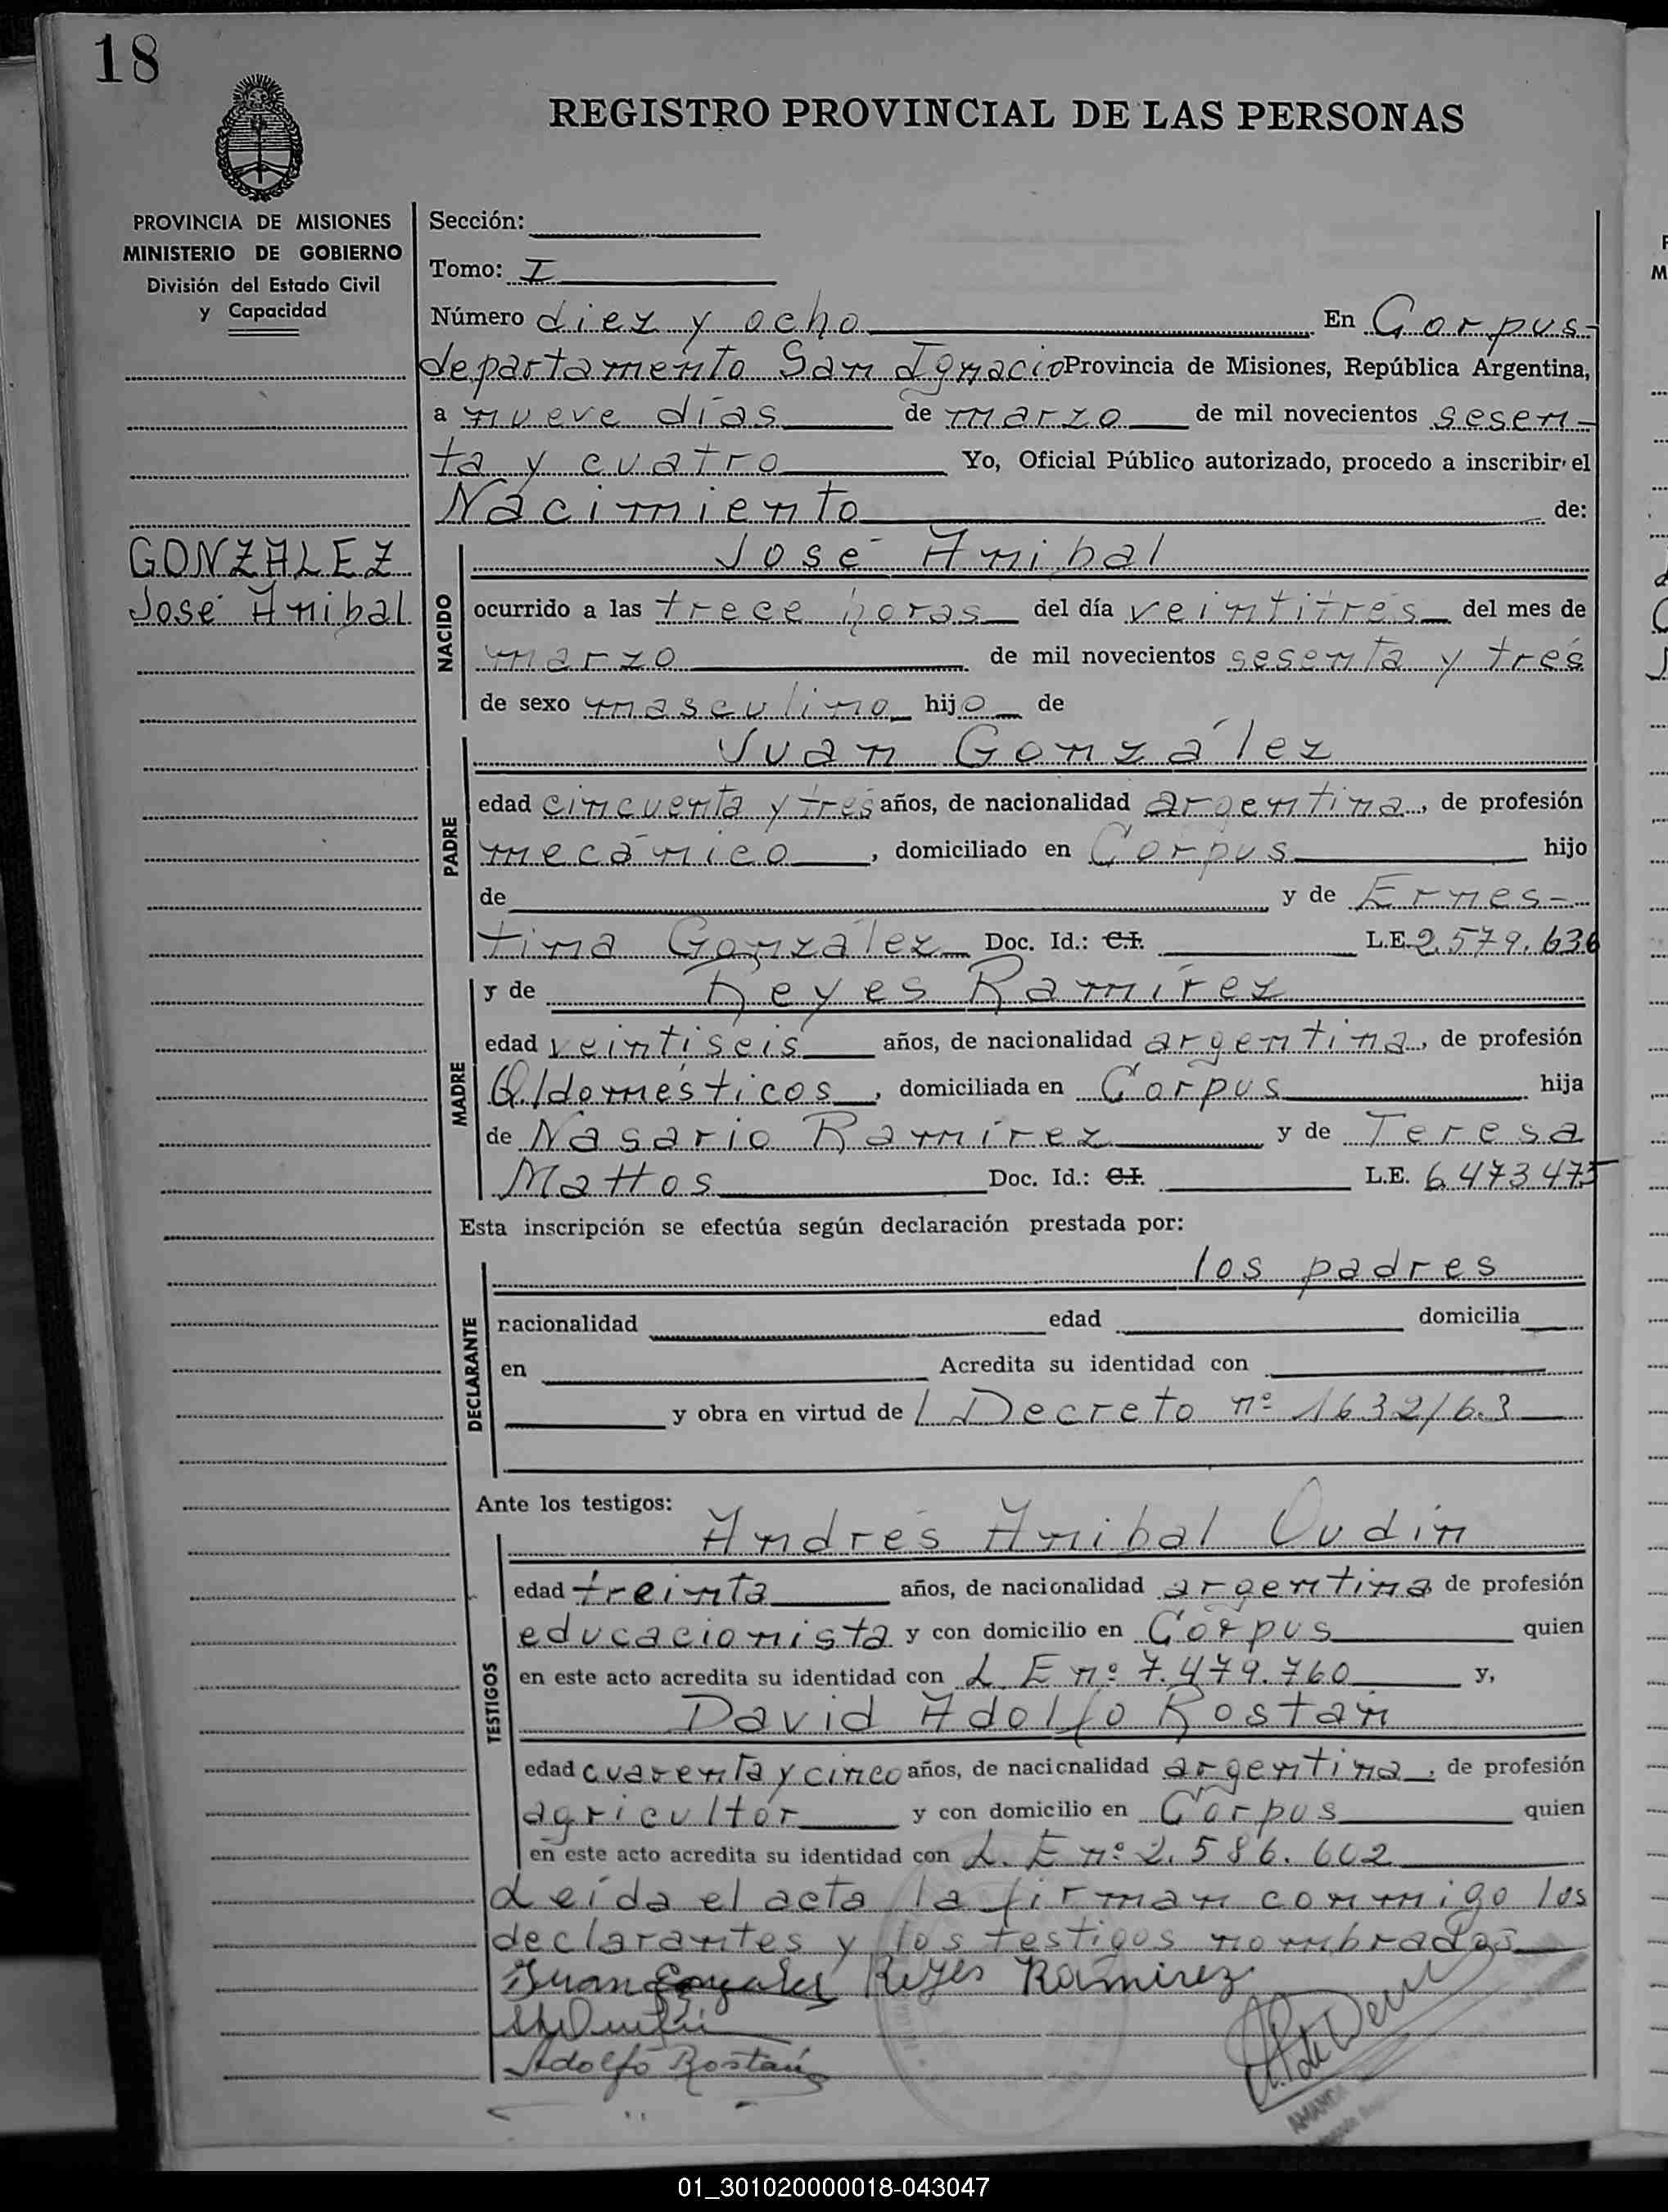 18
REGISTRO PROVINCIAL DE LAS PERSONAS
PROVINCIA DE MISIONES
MINISTERIO DE GOBIERNO
División del Estado Civil
y Capacidad
GONZALEZ
José Anibal
Sección:
Tomo: I
Número diez y ocho En Corpus-
departamento San Ignacio Provincia de Misiones, República Argentina,
a nueve días de marzo de mil novecientos sesen-
ta y cuatro Yo, Oficial Público autorizado, procedo a inscribir el
Nacimiento de:
NACIDO
José Anibal
ocurrido a las trece horas del día veintitrés del mes de
marzo de mil novecientos sesenta y tres
de sexo masculino hijo de
PADRE
Juan González
edad cincuenta y tres años, de nacionalidad argentina, de profesión
mecánico, domiciliado en Corpus hijo
de y de Ernes-
tina González Doc. Id.: C.I. L.E. 2.579.636
MADRE
y de Reyes Ramírez
edad veintiseis años, de nacionalidad argentina, de profesión
Q/domésticos, domiciliada en Corpus hija
de Nasario Ramírez y de Teresa
Mattos Doc. Id.: C.I. L.E. 6.473.475
Esta inscripción se efectúa según declaración prestada por:
DECLARANTE
los padres
nacionalidad edad domicilia
en Acredita su identidad con
y obra en virtud de l Decreto nº 1632/63
Ante los testigos:
TESTIGOS
Andrés Anibal Oudin
edad treinta años, de nacionalidad argentina de profesión
educacionista y con domicilio en Corpus quien
en este acto acredita su identidad con L. E nº 7.479.760 y,
David Adolfo Rostán
edad cuarenta y cinco años, de nacionalidad argentina, de profesión
agricultor y con domicilio en Corpus quien
en este acto acredita su identidad con L. E nº 2.586.602
Leída el acta la firman conmigo los
declarantes y los testigos nombrados
Juan Gonzalez Reyes Ramirez
Adolfo Rostán
01_301020000018-043047